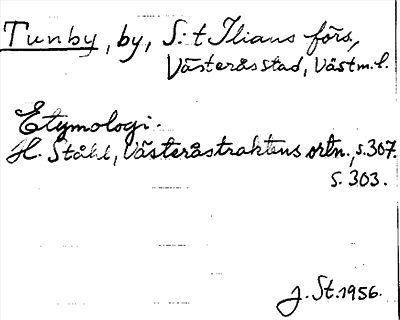 Tunby, by, S:t Ilians förs,
Västerås stad, Västm. l.
Etymologi.
H. Ståhl, Västeråstraktens ortn., s. 307.
s. 303.
J. St. 1956.